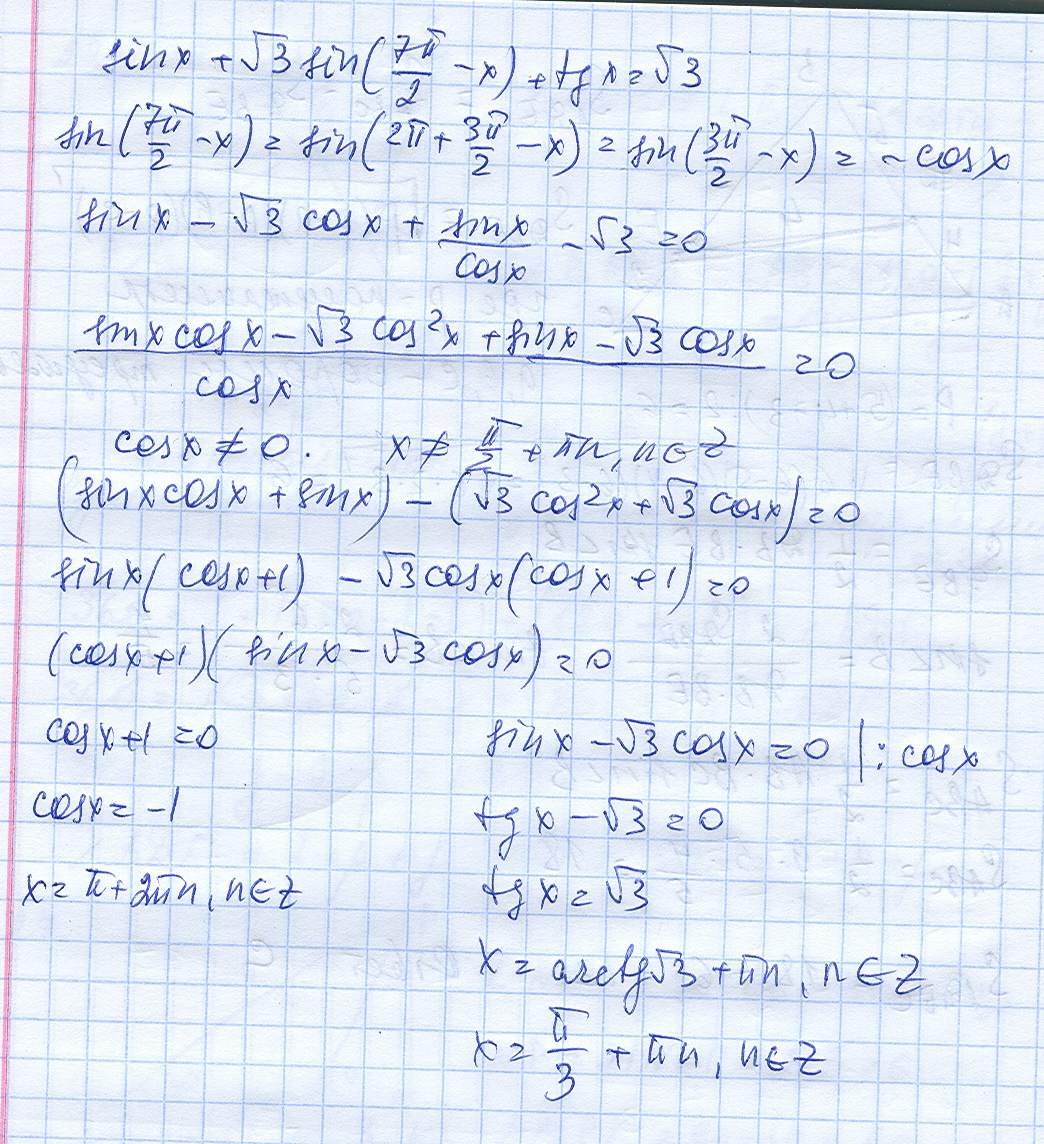 sinx + √3 sin(7π/2 - x) + tgx = √3
sin(7π/2 - x) = sin(2π + 3π/2 - x) = sin(3π/2 - x) = - cosx
sinx - √3 cosx + sinx/cosx - √3 = 0
(sinx cosx - √3 cos²x + sinx - √3 cosx)/cosx = 0
cosx ≠ 0. x ≠ π/2 + πn, n ∈ Z
(sinx cosx + sinx) - (√3 cos²x + √3 cosx) = 0
sinx( cosx+1) - √3 cosx(cosx + 1) = 0
(cosx+1)(sinx - √3 cosx) = 0
cosx+1 = 0
cosx = -1
x = π + 2πn, n ∈ Z
sinx - √3 cosx = 0 | : cosx
tgx - √3 = 0
tgx = √3
x = arctg√3 + πn, n ∈ Z
x = π/3 + πn, n ∈ Z